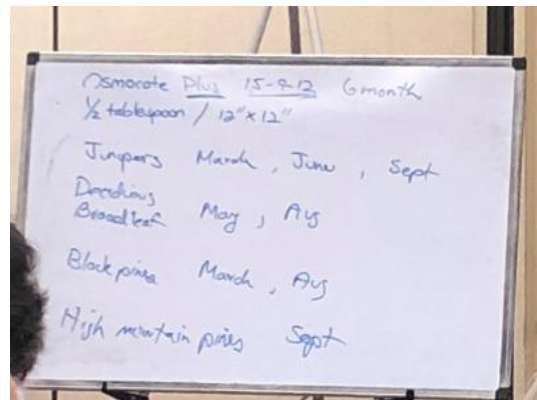 Osmocote Plus 15-9-12 6 month
1/2 tablespoon / 12" x 12"
Junipers March, June, Sept
Decidious
Broadleaf May, Aug
Black pines March, Aug
High mountain pines Sept